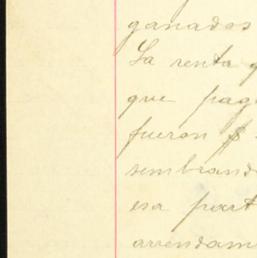 ganados
La renta q
que pag
fueron $
sembrand
esa part
arrendam